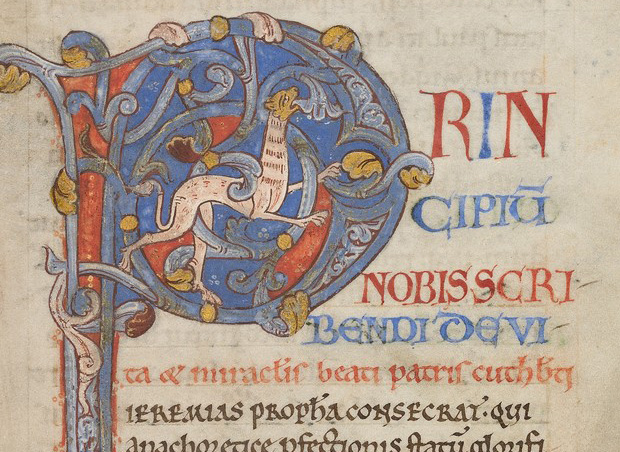 PRIN
CIPIŪ
NOBIS SCRI
BENDI DE VI
ta & miraclis beati patris cuthb̄ti
IEREMIAS PROPħA CONSECRAT· QUI
anachoretice pfectionis statū glorifi